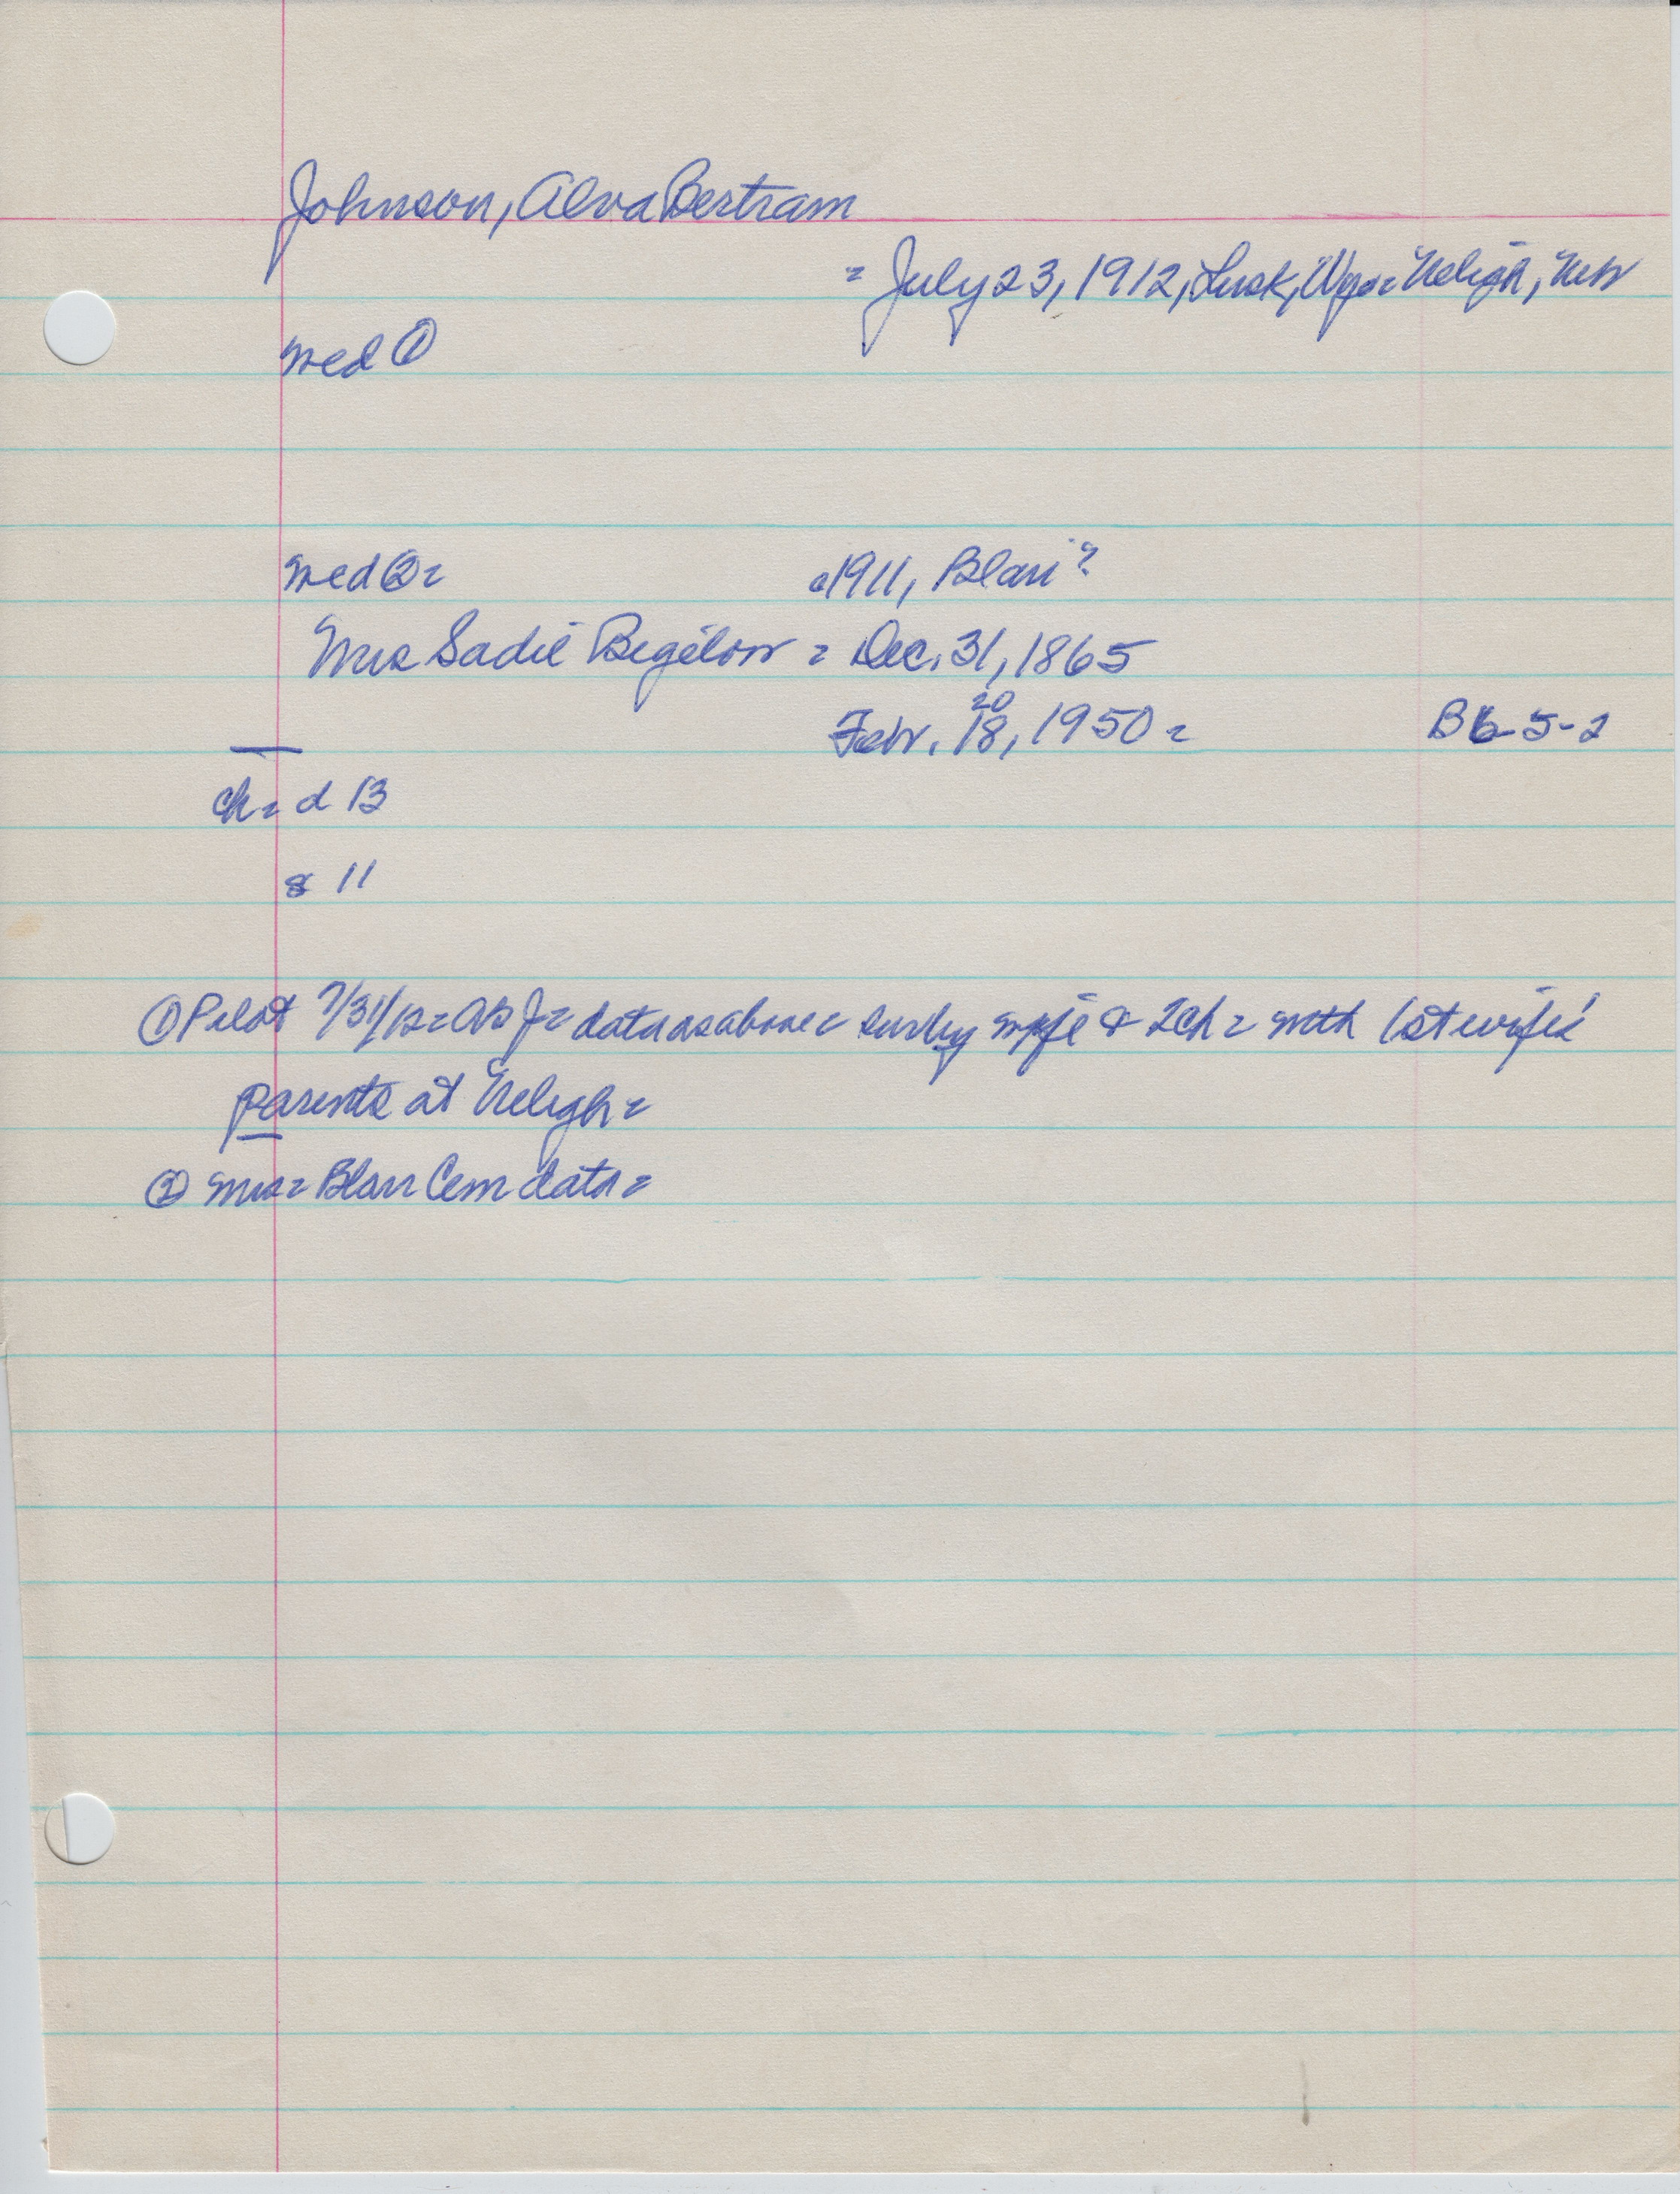 Johnson, Alva Bertram
= July 23, 1912, Lusk, Wyo = Neligh, Neb
med ①
med ② = c1911, Blair?
Mrs Sadie Begelow = Dec. 31, 1865
20
Febr. 18, 1950 = B 6-5-2
ch = d 13
s 11
① Pilot 7/31/12 = AB J = data as above = surv by wife & 2 ch = with 1st wife's
parents at Neligh =
② Mrs = Blair Cem data =